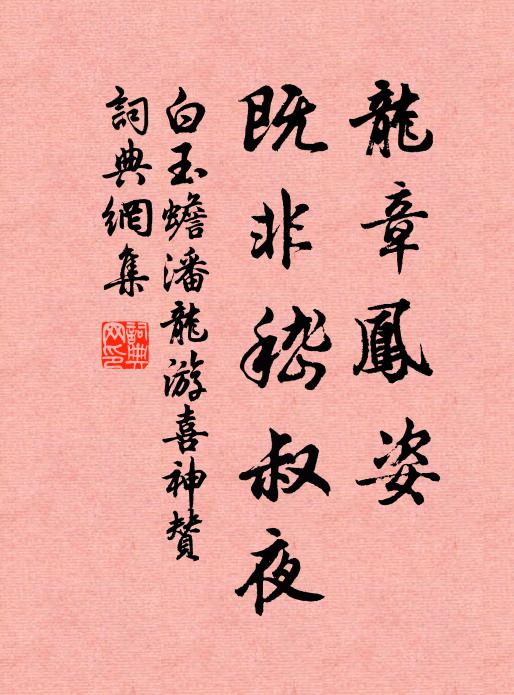 龍章鳳姿
既非嵇叔夜
白玉蟾潘龍游喜神贊
詞典網集
詞典
网印